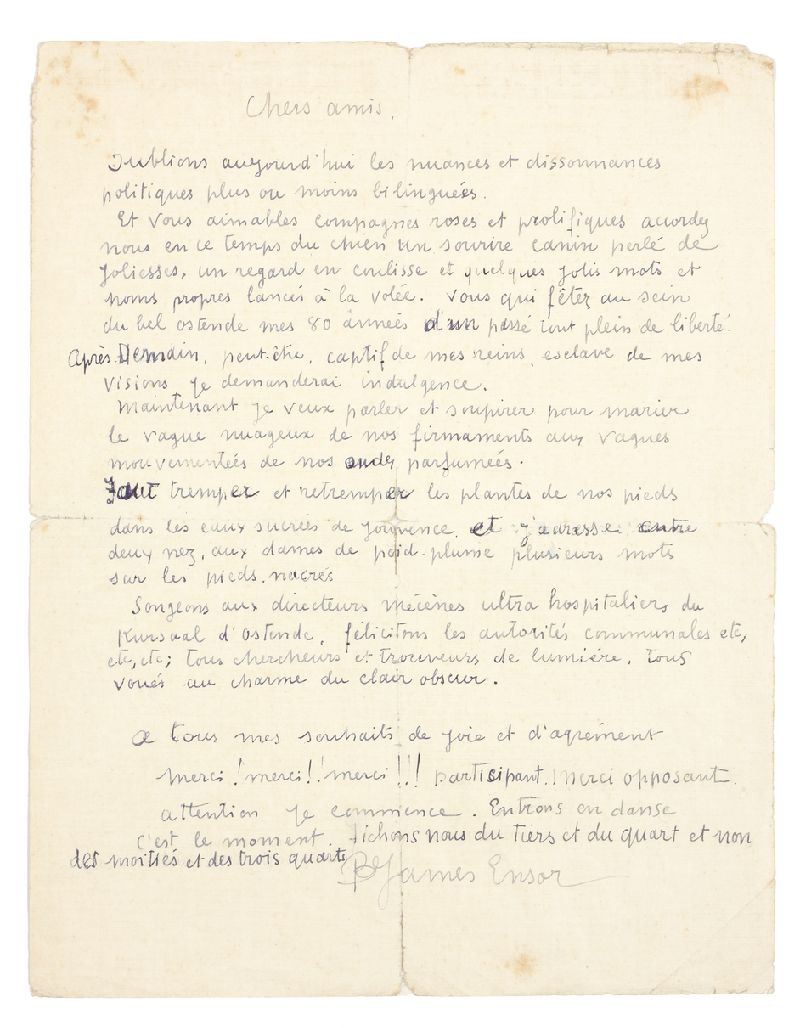 Chers amis,
Oublions aujourd'hui les nuances et dissonnances
politiques plus ou moins bilinguées.
Et vous aimables compagnes roses et prolifiques accordez
nous en ce temps du chien un sourire canin perlé de
joliesses, un regard en coulisse et quelques jolis mots et
noms propres lancés à la volée. Vous qui fêtez au sein
du bel ostende mes 80 années d'un passé tout plein de liberté.
Après Demain, peut-être, captif de mes reins, esclave de mes
visions je demanderai indulgence.
Maintenant je veux parler et soupirer pour marier
le vague nuageux de nos firmaments aux vagues
mouvementées de nos ondes parfumées.
Faut tremper et retremper les plantes de nos pieds
dans les eaux sucrées de jouvence. et j'adresse entre
deux nez, aux dames de poid-plume plusieurs mots
sur les pieds nacrés
Songeons aux directeurs mécènes ultra hospitaliers du
Kursaal d'Ostende, félicitons les autorités communales etc,
etc, etc; tous chercheurs et trouveurs de lumière, tous
voués au charme du clair obscur.
a tous mes souhaits de joie et d'agrément
merci! merci!! merci!!! participant!! merci opposant
attention je commence. Entrons en danse
c'est le moment. Fichons nous du tiers et du quart et non
des moitiés et des trois quarts
James Ensor